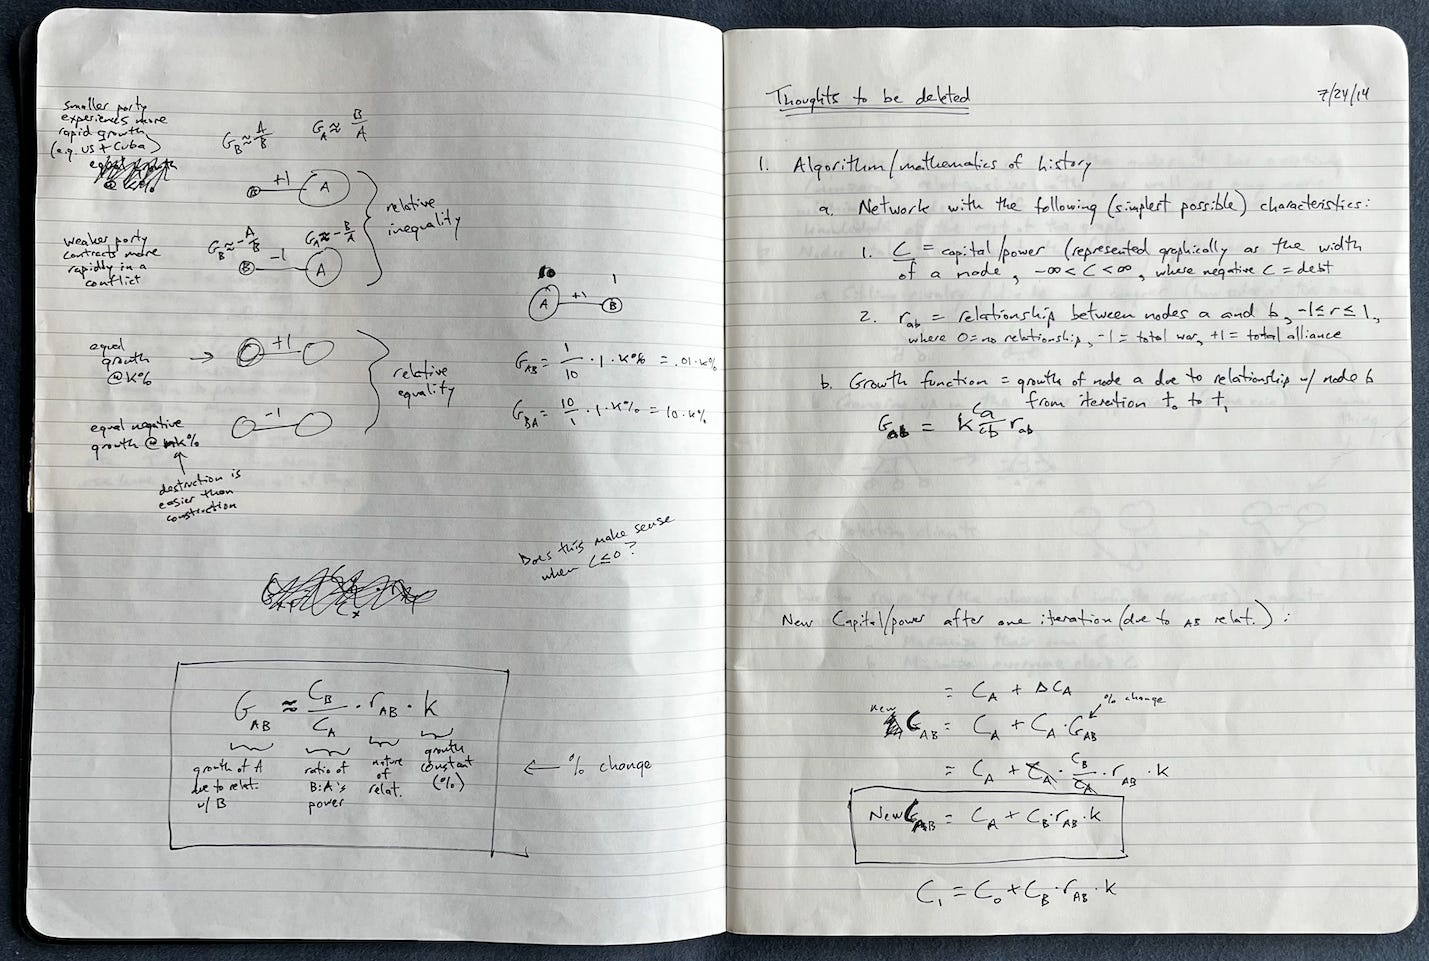 smaller party
experiences more
rapid growth
(e.g. US + Cuba)
@ k%
G_B ≈ A/B
G_A ≈ B/A
B +1 A
relative
inequality
weaker party
contracts more
rapidly in a
conflict
G_B ≈ -A/B
G_A ≈ -B/A
B -1 A
10 1
A +1 B
equal
growth
@ k%
→ +1
relative
equality
G_AB = 1/10 · 1 · k% = .01 · k%
G_BA = 10/1 · 1 · k% = 10 · k%
-1
equal negative
growth @ k%
destruction is
easier than
construction
Does this make sense
when C ≤ 0?
G_AB ≈ C_B/C_A · r_AB · k
growth of A
due to relat.
w/ B
ratio of
B:A's
power
nature
of
relat.
growth
constant
(%)
← % change
Thoughts to be deleted 7/24/14
1. Algorithm/mathematics of history
a. Network with the following (simplest possible) characteristics:
1. C = capital/power (represented graphically as the width
of a node, -∞ < C < ∞, where negative C = debt
2. r_ab = relationship between nodes a and b, -1 ≤ r ≤ 1,
where 0 = no relationship, -1 = total war, +1 = total alliance
b. Growth function = growth of node a due to relationship w/ node b
from iteration t_0 to t_1
G_ab = k Ca/Cb r_ab
New Capital/power after one iteration (due to AB relat.):
= C_A + ΔC_A
% change
new C_AB = C_A + C_A · G_AB
= C_A + C_A · C_B/C_A · r_AB · k
New C_AB = C_A + C_B · r_AB · k
C_1 = C_0 + C_B · r_AB · k